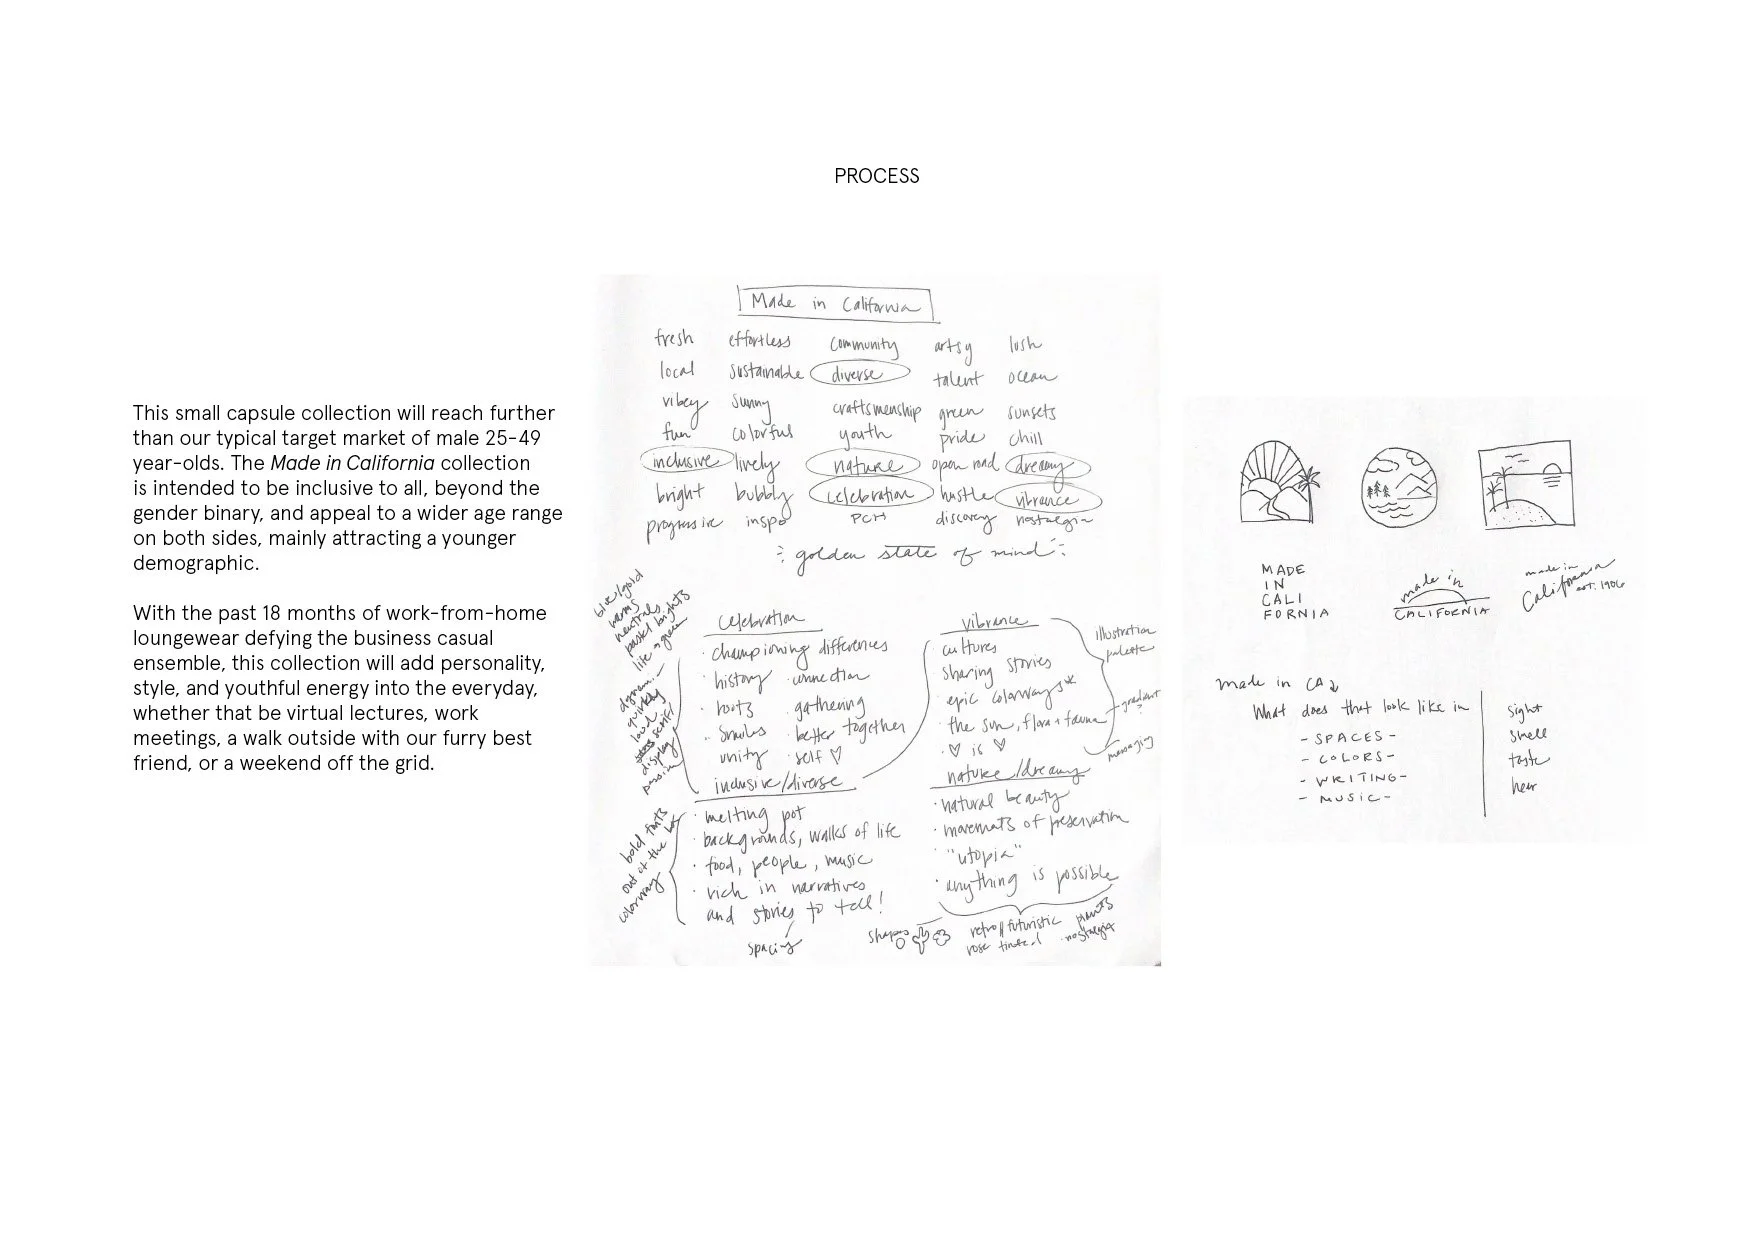 PROCESS
This small capsule collection will reach further
than our typical target market of male 25-49
year-olds. The Made in California collection
is intended to be inclusive to all, beyond the
gender binary, and appeal to a wider age range
on both sides, mainly attracting a younger
demographic.
With the past 18 months of work-from-home
loungewear defying the business casual
ensemble, this collection will add personality,
style, and youthful energy into the everyday,
whether that be virtual lectures, work
meetings, a walk outside with our furry best
friend, or a weekend off the grid.
Made in California
fresh effortless community artsy lush
local sustainable diverse talent ocean
vibey sunny craftsmenship green sunsets
fun colorful youth pride chill
inclusive lively nature open road dreamy
bright bubbly celebration hustle vibrance
progressive inspo PCH discovery nostalgia
golden state of mind
blue/gold
warms
neutrals
pastel brights
celebration
· championing differences
· history · connection
· roots · gathering
· smiles · better together
unity · self ♡
inclusive/diverse
· melting pot
· backgrounds, walks of life
· food, people, music
· rich in narratives
and stories to tell!
spacing
bold fonts
out of the
colorway
vibrance
cultures
sharing stories
epic colorways*
· the sun, flora + fauna
· ♡ is ♡
illustration
palette
gradient
?
messaging
nature/dreamy
· natural beauty
· movements of preservation
· "utopia"
· anything is possible
shapes
retro futuristic
rose tinted
plants
nostalgia
MADE
IN
CALI
FORNIA
made in
CALIFORNIA
made in
California
est. 1906
made in CA
What does that look like in
- SPACES -
- COLORS -
- WRITING -
- MUSIC -
sight
smell
taste
hear